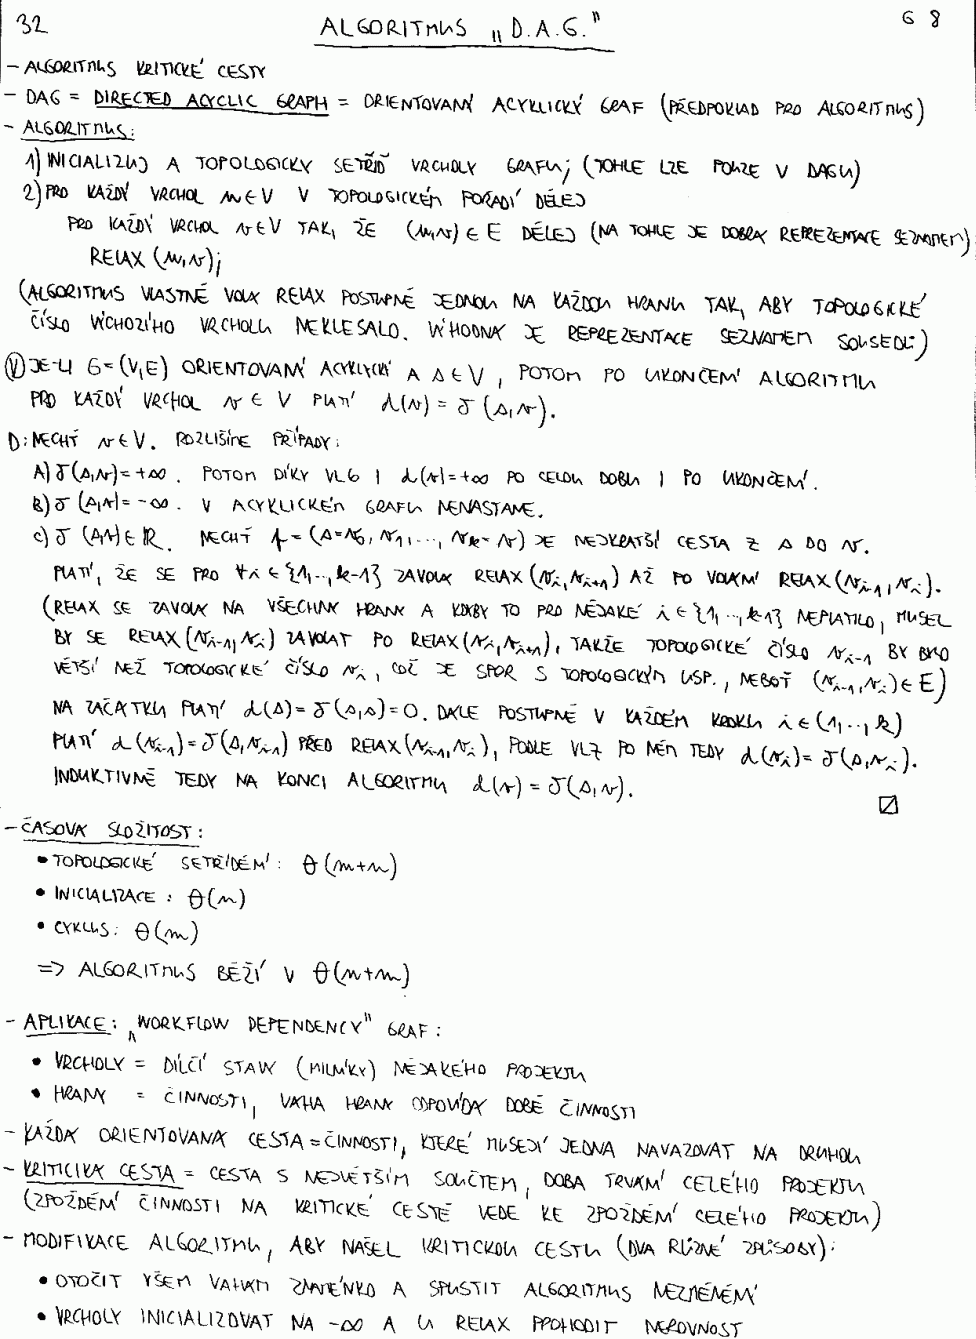 32 ALGORITMUS „D.A.G." G 8
- ALGORITMUS KRITICKÉ CESTY
- DAG = DIRECTED ACYCLIC GRAPH = ORIENTOVANÝ ACYKLICKÝ GRAF (PŘEDPOKLAD PRO ALGORITMUS)
- ALGORITMUS:
1) INICIALIZUJ A TOPOLOGICKY SETŘIĎ VRCHOLY GRAFU; (TOHLE LZE POUZE V DAGU)
2) PRO KAŽDÝ VRCHOL u∈V V TOPOLOGICKÉM POŘADÍ DĚLEJ
PRO KAŽDÝ VRCHOL v∈V TAK, ŽE (u,v)∈E DĚLEJ (NA TOHLE JE DOBRÁ REPREZENTACE SEZNAMEM)
RELAX (u,v);
(ALGORITMUS VLASTNĚ VOLÁ RELAX POSTUPNĚ JEDNOU NA KAŽDOU HRANU TAK, ABY TOPOLOGICKÉ
ČÍSLO VÝCHOZÍHO VRCHOLU NEKLESALO. VÝHODNÁ JE REPREZENTACE SEZNAMEM SOUSEDŮ.)
Ⓥ JE-LI G=(V,E) ORIENTOVANÝ ACYKLICKÝ A s∈V, POTOM PO UKONČENÍ ALGORITMU
PRO KAŽDÝ VRCHOL v∈V PLATÍ d(v) = δ(s,v).
D: NECHŤ v∈V. ROZLIŠÍME PŘÍPADY:
A) δ(s,v)=+∞. POTOM DÍKY VL6 I d(v)=+∞ PO CELOU DOBU I PO UKONČENÍ.
B) δ(s,v)=-∞. V ACYKLICKÉM GRAFU NENASTANE.
C) δ(s,v)∈ℝ. NECHŤ p=(s=v₀,v₁,...,vₖ=v) JE NEJKRATŠÍ CESTA Z s DO v.
PLATÍ, ŽE SE PRO ∀i∈{1,..,k-1} ZAVOLÁ RELAX(vᵢ,vᵢ₊₁) AŽ PO VOLÁNÍ RELAX(vᵢ₋₁,vᵢ).
(RELAX SE ZAVOLÁ NA VŠECHNY HRANY A KDYBY TO PRO NĚJAKÉ i∈{1,..,k-1} NEPLATILO, MUSEL
BY SE RELAX(vᵢ₋₁,vᵢ) ZAVOLAT PO RELAX(vᵢ,vᵢ₊₁), TAKŽE TOPOLOGICKÉ ČÍSLO vᵢ₋₁ BY BYLO
VĚTŠÍ NEŽ TOPOLOGICKÉ ČÍSLO vᵢ, COŽ JE SPOR S TOPOLOGICKÝM USP., NEBOŤ (vᵢ₋₁,vᵢ)∈E)
NA ZAČÁTKU PLATÍ d(s)=δ(s,s)=0. DÁLE POSTUPNĚ V KAŽDÉM KROKU i∈(1,..,k)
PLATÍ d(vᵢ₋₁)=δ(s,vᵢ₋₁) PŘED RELAX(vᵢ₋₁,vᵢ), PODLE VL7 PO NĚM TEDY d(vᵢ)=δ(s,vᵢ).
INDUKTIVNĚ TEDY NA KONCI ALGORITMU d(v)=δ(s,v).
- ČASOVÁ SLOŽITOST:
• TOPOLOGICKÉ SETŘÍDĚNÍ: θ(m+n)
• INICIALIZACE: θ(n)
• CYKLUS: θ(m)
=> ALGORITMUS BĚŽÍ V θ(m+n)
- APLIKACE: „WORKFLOW DEPENDENCY" GRAF:
• VRCHOLY = DÍLČÍ STAVY (MILNÍKY) NĚJAKÉHO PROJEKTU
• HRANY = ČINNOSTI, VÁHA HRANY ODPOVÍDÁ DOBĚ ČINNOSTI
- KAŽDÁ ORIENTOVANÁ CESTA = ČINNOSTI, KTERÉ MUSEJÍ JEDNA NAVAZOVAT NA DRUHOU
- KRITICKÁ CESTA = CESTA S NEJVĚTŠÍM SOUČTEM, DOBA TRVÁNÍ CELÉHO PROJEKTU
(ZPOŽDĚNÍ ČINNOSTI NA KRITICKÉ CESTĚ VEDE KE ZPOŽDĚNÍ CELÉHO PROJEKTU)
- MODIFIKACE ALGORITMU, ABY NAŠEL KRITICKOU CESTU (DVA RŮZNÉ ZPŮSOBY):
• OTOČIT VŠEM VAHÁM ZNAMÉNKO A SPUSTIT ALGORITMUS NEZMĚNĚNÝ
• VRCHOLY INICIALIZOVAT NA -∞ A U RELAX PROHODIT NEROVNOST